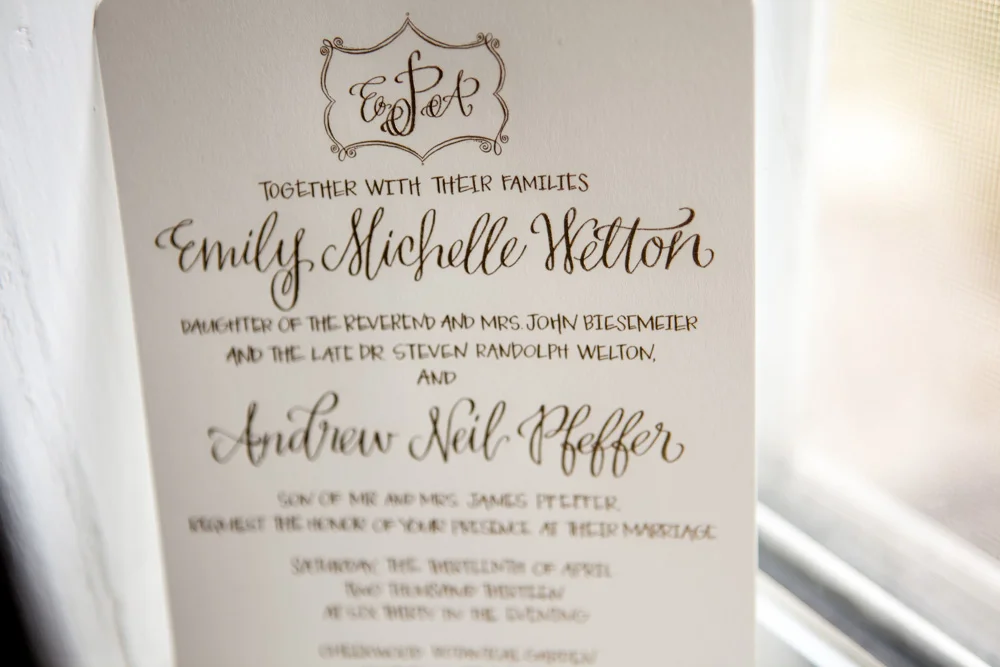 EPA
TOGETHER WITH THEIR FAMILIES
Emily Michelle Welton
DAUGHTER OF THE REVEREND AND MRS. JOHN BIESEMEIER
AND THE LATE DR. STEVEN RANDOLPH WELTON,
AND
Andrew Neil Pfeffer
SON OF MR AND MRS. JAMES PFEFFER,
REQUEST THE HONOR OF YOUR PRESENCE AT THEIR MARRIAGE
SATURDAY, THE THIRTEENTH OF APRIL
TWO THOUSAND THIRTEEN
AT SIX THIRTY IN THE EVENING
BOTANICAL GARDEN